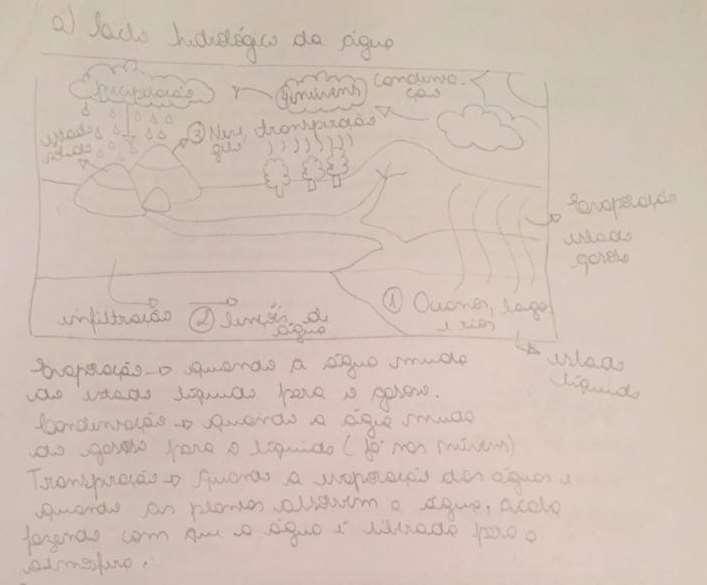 a) Ciclo hidrológico da água
precipitação
4 nuvens
condensa-
ção
estado
sólido
3 Neve,
gelo
transpiração
Evaporação
estado
gasoso
infiltração
2 lençóis de
água
1 Oceanos, lagos
e rios
estado
líquido
Evaporação → quando a água muda
do estado líquido para o gasoso.
Condensação → quando a água muda
do gasoso para o líquido (já nas nuvens)
Transpiração → quando a evaporação das águas e
quando as plantas absorvem a água, acaba
fazendo com que a água é liberada para a
atmosfera.